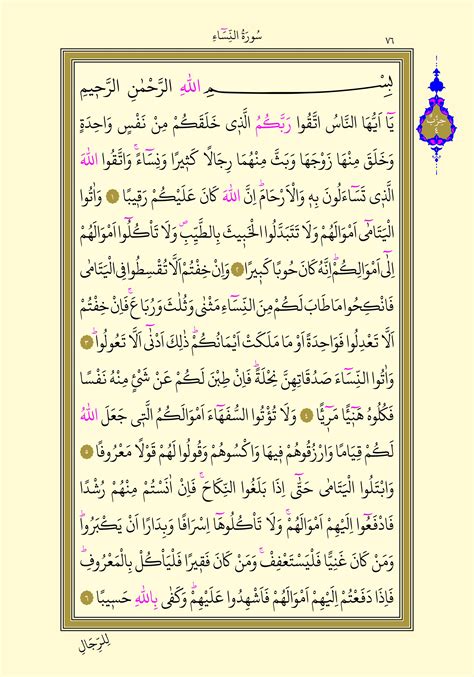 ٧٦
سُورَةُ النِّسَاءِ
بِسْــــمِ اللهِ الرَّحْمٰنِ الرَّحِيمِ
يَٓا اَيُّهَا النَّاسُ اتَّقُوا رَبَّكُمُ الَّذ۪ي خَلَقَكُمْ مِنْ نَفْسٍ وَاحِدَةٍ
وَخَلَقَ مِنْهَا زَوْجَهَا وَبَثَّ مِنْهُمَا رِجَالًا كَث۪يرًا وَنِسَٓاءًۚ وَاتَّقُوا اللهَ
الَّذ۪ي تَسَٓاءَلُونَ بِه۪ وَالْاَرْحَامَۜ اِنَّ اللهَ كَانَ عَلَيْكُمْ رَق۪يبًا ١ وَاٰتُوا
الْيَتَامٰٓى اَمْوَالَهُمْ وَلَا تَتَبَدَّلُوا الْخَب۪يثَ بِالطَّيِّبِۖ وَلَا تَأْكُلُٓوا اَمْوَالَهُمْ
اِلٰٓى اَمْوَالِكُمْۜ اِنَّهُ كَانَ حُوبًا كَب۪يرًا ٢ وَاِنْ خِفْتُمْ اَلَّا تُقْسِطُوا فِي الْيَتَامٰى
فَانْكِحُوا مَا طَابَ لَكُمْ مِنَ النِّسَٓاءِ مَثْنٰى وَثُلٰثَ وَرُبَاعَۚ فَاِنْ خِفْتُمْ
اَلَّا تَعْدِلُوا فَوَاحِدَةً اَوْ مَا مَلَكَتْ اَيْمَانُكُمْۜ ذٰلِكَ اَدْنٰٓى اَلَّا تَعُولُواۜ ٣
وَاٰتُوا النِّسَٓاءَ صَدُقَاتِهِنَّ نِحْلَةًۜ فَاِنْ طِبْنَ لَكُمْ عَنْ شَيْءٍ مِنْهُ نَفْسًا
فَكُلُوهُ هَن۪ٓيـًٔا مَر۪ٓيـًٔا ٤ وَلَا تُؤْتُوا السُّفَهَٓاءَ اَمْوَالَكُمُ الَّت۪ي جَعَلَ اللهُ
لَكُمْ قِيَامًا وَارْزُقُوهُمْ ف۪يهَا وَاكْسُوهُمْ وَقُولُوا لَهُمْ قَوْلًا مَعْرُوفًا ٥
وَابْتَلُوا الْيَتَامٰى حَتّٰٓى اِذَا بَلَغُوا النِّكَاحَۚ فَاِنْ اٰنَسْتُمْ مِنْهُمْ رُشْدًا
فَادْفَعُٓوا اِلَيْهِمْ اَمْوَالَهُمْۚ وَلَا تَأْكُلُوهَٓا اِسْرَافًا وَبِدَارًا اَنْ يَكْبَرُواۜ
وَمَنْ كَانَ غَنِيًّا فَلْيَسْتَعْفِفْۚ وَمَنْ كَانَ فَق۪يرًا فَلْيَأْكُلْ بِالْمَعْرُوفِۜ
فَاِذَا دَفَعْتُمْ اِلَيْهِمْ اَمْوَالَهُمْ فَاَشْهِدُوا عَلَيْهِمْۜ وَكَفٰى بِاللهِ حَس۪يبًا ٦
لِلرِّجَالِ